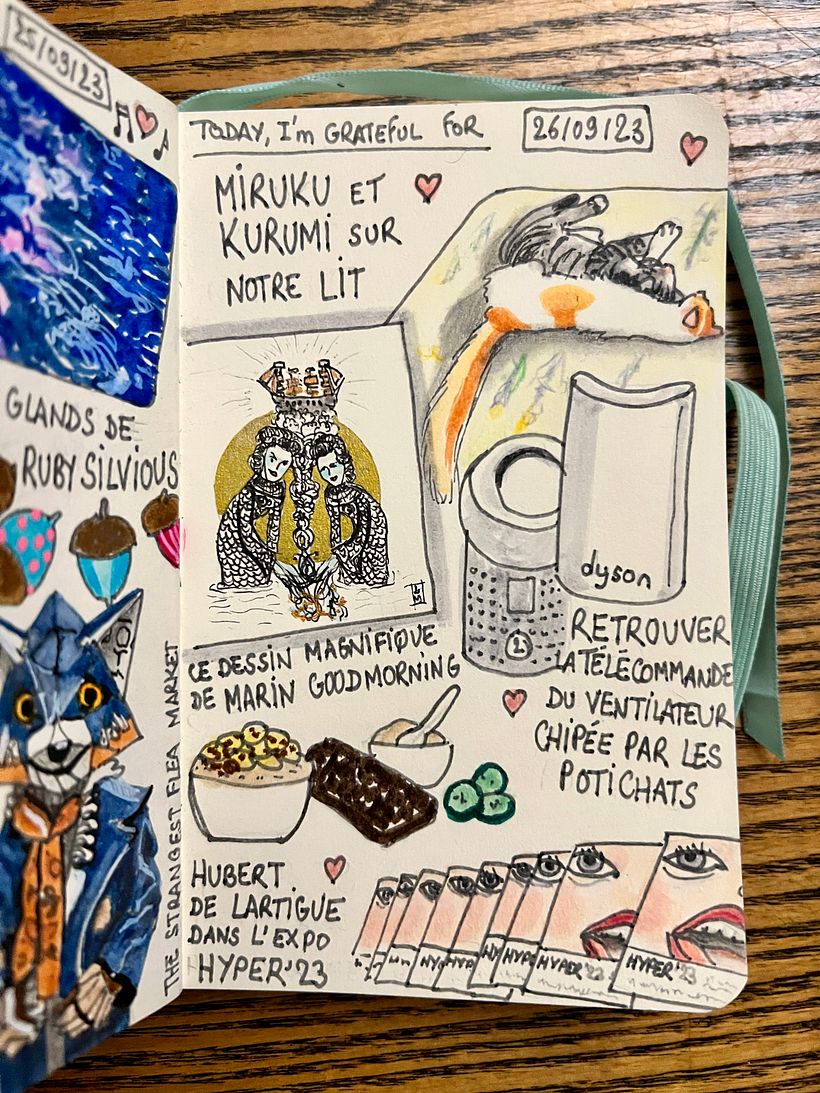 25/09/23
GLANDS DE
RUBY SILVIOUS
THE STRANGEST FLEA MARKET
TODAY, I'm GRATEFUL FOR
26/09/23
MIRUKU ET
KURUMI SUR
NOTRE LIT
dyson
CE DESSIN MAGNIFIQUE
DE MARIN GOODMORNING
RETROUVER
LA TÉLÉCOMMANDE
DU VENTILATEUR
CHIPÉE PAR LES
POTICHATS
HUBERT
DE LARTIGUE
DANS L'EXPO
HYPER'23
HYPER'23
HYPER'23